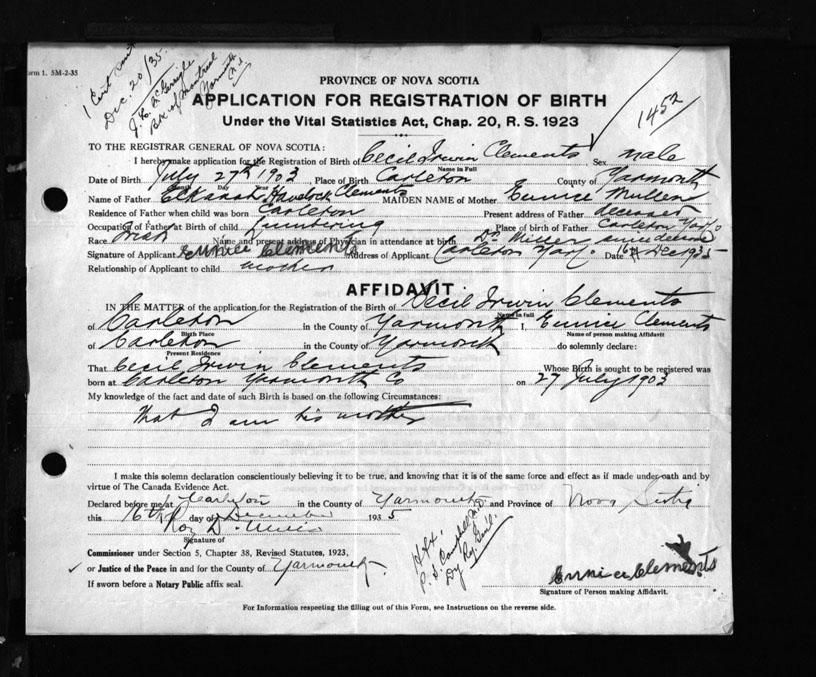 Form 1. 5M-2-35
1 Cert sent
Dec. 20/35.
Yarmouth
N.S.
PROVINCE OF NOVA SCOTIA
APPLICATION FOR REGISTRATION OF BIRTH
Under the Vital Statistics Act, Chap. 20, R. S. 1923
TO THE REGISTRAR GENERAL OF NOVA SCOTIA:
I hereby make application for the Registration of Birth of Cecil Irwin Clements Sex male
Name in Full
Date of Birth July 27th 1903 Place of Birth Carleton County of Yarmouth
Month Day Year
Name of Father Elkanah Havelock Clements MAIDEN NAME of Mother Eunice Mullen
Residence of Father when child was born Carleton Present address of Father deceased
Occupation of Father at Birth of child Lumbering Place of birth of Father Carleton Yar. Co
Race Irish Name and present address of Physician in attendance at birth Dr Miller since deceased
Signature of Applicant Eunice Clements Address of Applicant Carleton Yar. Co. Date 16th Dec 1935
Relationship of Applicant to child mother
AFFIDAVIT
IN THE MATTER of the application for the Registration of the Birth of Cecil Irwin Clements
Name in full
of Carleton in the County of Yarmouth I, Eunice Clements
Birth Place Name of person making Affidavit
of Carleton in the County of Yarmouth do solemnly declare:
Present Residence
That Cecil Irwin Clements Whose Birth is sought to be registered was
born at Carleton Yarmouth Co on 27 July 1903
My knowledge of the fact and date of such Birth is based on the following Circumstances:
That I am his mother
I make this solemn declaration conscientiously believing it to be true, and knowing that it is of the same force and effect as if made under oath and by
virtue of The Canada Evidence Act.
Declared before me at Carleton in the County of Yarmouth and Province of Nova Scotia
this 16th day of December 1935
Roy D.
Signature of
Commissioner under Section 5, Chapter 38, Revised Statutes, 1923,
or Justice of the Peace in and for the County of Yarmouth.
If sworn before a Notary Public affix seal.
Hfx.
P. S. Campbell M.D.
Dy Reg. Genl.
Eunice Clements
Signature of Person making Affidavit.
For Information respecting the filling out of this Form, see Instructions on the reverse side.